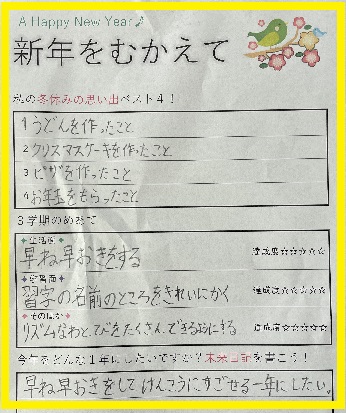 A Happy New Year♪
新年をむかえて
私の冬休みの思い出ベスト4！
1 うどんを作ったこと
2 クリスマスケーキを作ったこと
3 ピザを作ったこと
4 お年玉をもらったこと
3学期のめあて
✦生活面✦
早ね早おきをする 達成度☆☆☆☆☆
✦学習面✦
習字の名前のところをきれいにかく 達成度☆☆☆☆☆
✦そのほか✦
リズムなわとびをたくさんできるようにする 達成度☆☆☆☆☆
今年をどんな1年にしたいですか？未来日記を書こう！
早ね早おきをしてけんこうにすごせる一年にしたい。